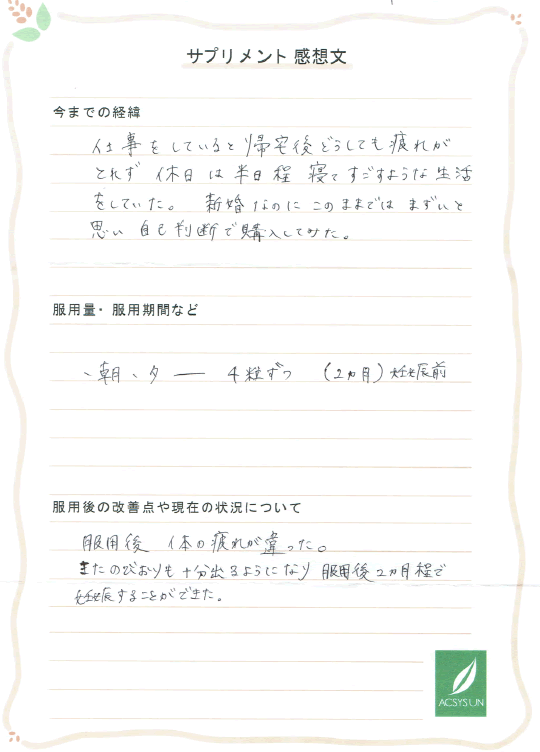 サプリメント 感想文
今までの経緯
仕事をしていると帰宅後どうしても疲れが
とれず 休日は半日程 寝てすごすような生活
をしていた。 新婚なのに このままでは まずいと
思い 自己判断で購入してみた。
服用量・服用期間など
、朝、夕 ― 4粒ずつ (2ヵ月) 妊娠前
服用後の改善点や現在の状況について
服用後 体の疲れが違った。
またのびおりも十分出るようになり 服用後2ヵ月程で
妊娠することができた。
ACSYSUN